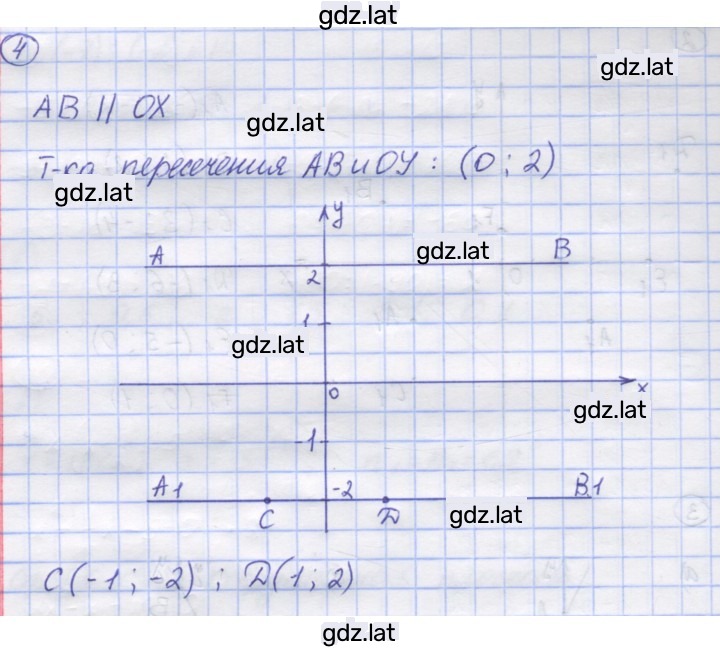 gdz.lat
4
gdz.lat
AB || OX
gdz.lat
Т-ка пересечения AB и OY : (0 ; 2)
gdz.lat
y
A gdz.lat B
2
1
gdz.lat
0 x
gdz.lat
-1
A1 -2 B1
C D gdz.lat
C(-1 ; -2) ; D(1 ; 2)
gdz.lat